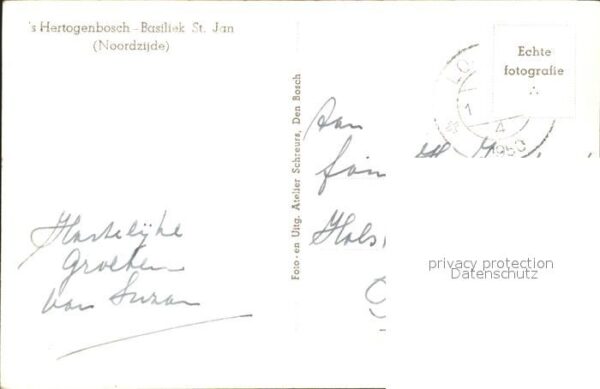 's Hertogenbosch - Basiliek St. Jan
(Noordzijde)
Echte
fotografie
Foto- en Uitg. Atelier Schreurs, Den Bosch
1
4
1950
Aan
fam
Hols
privacy protection
Datenschutz
Hartelijke
Groeten
van Suzan